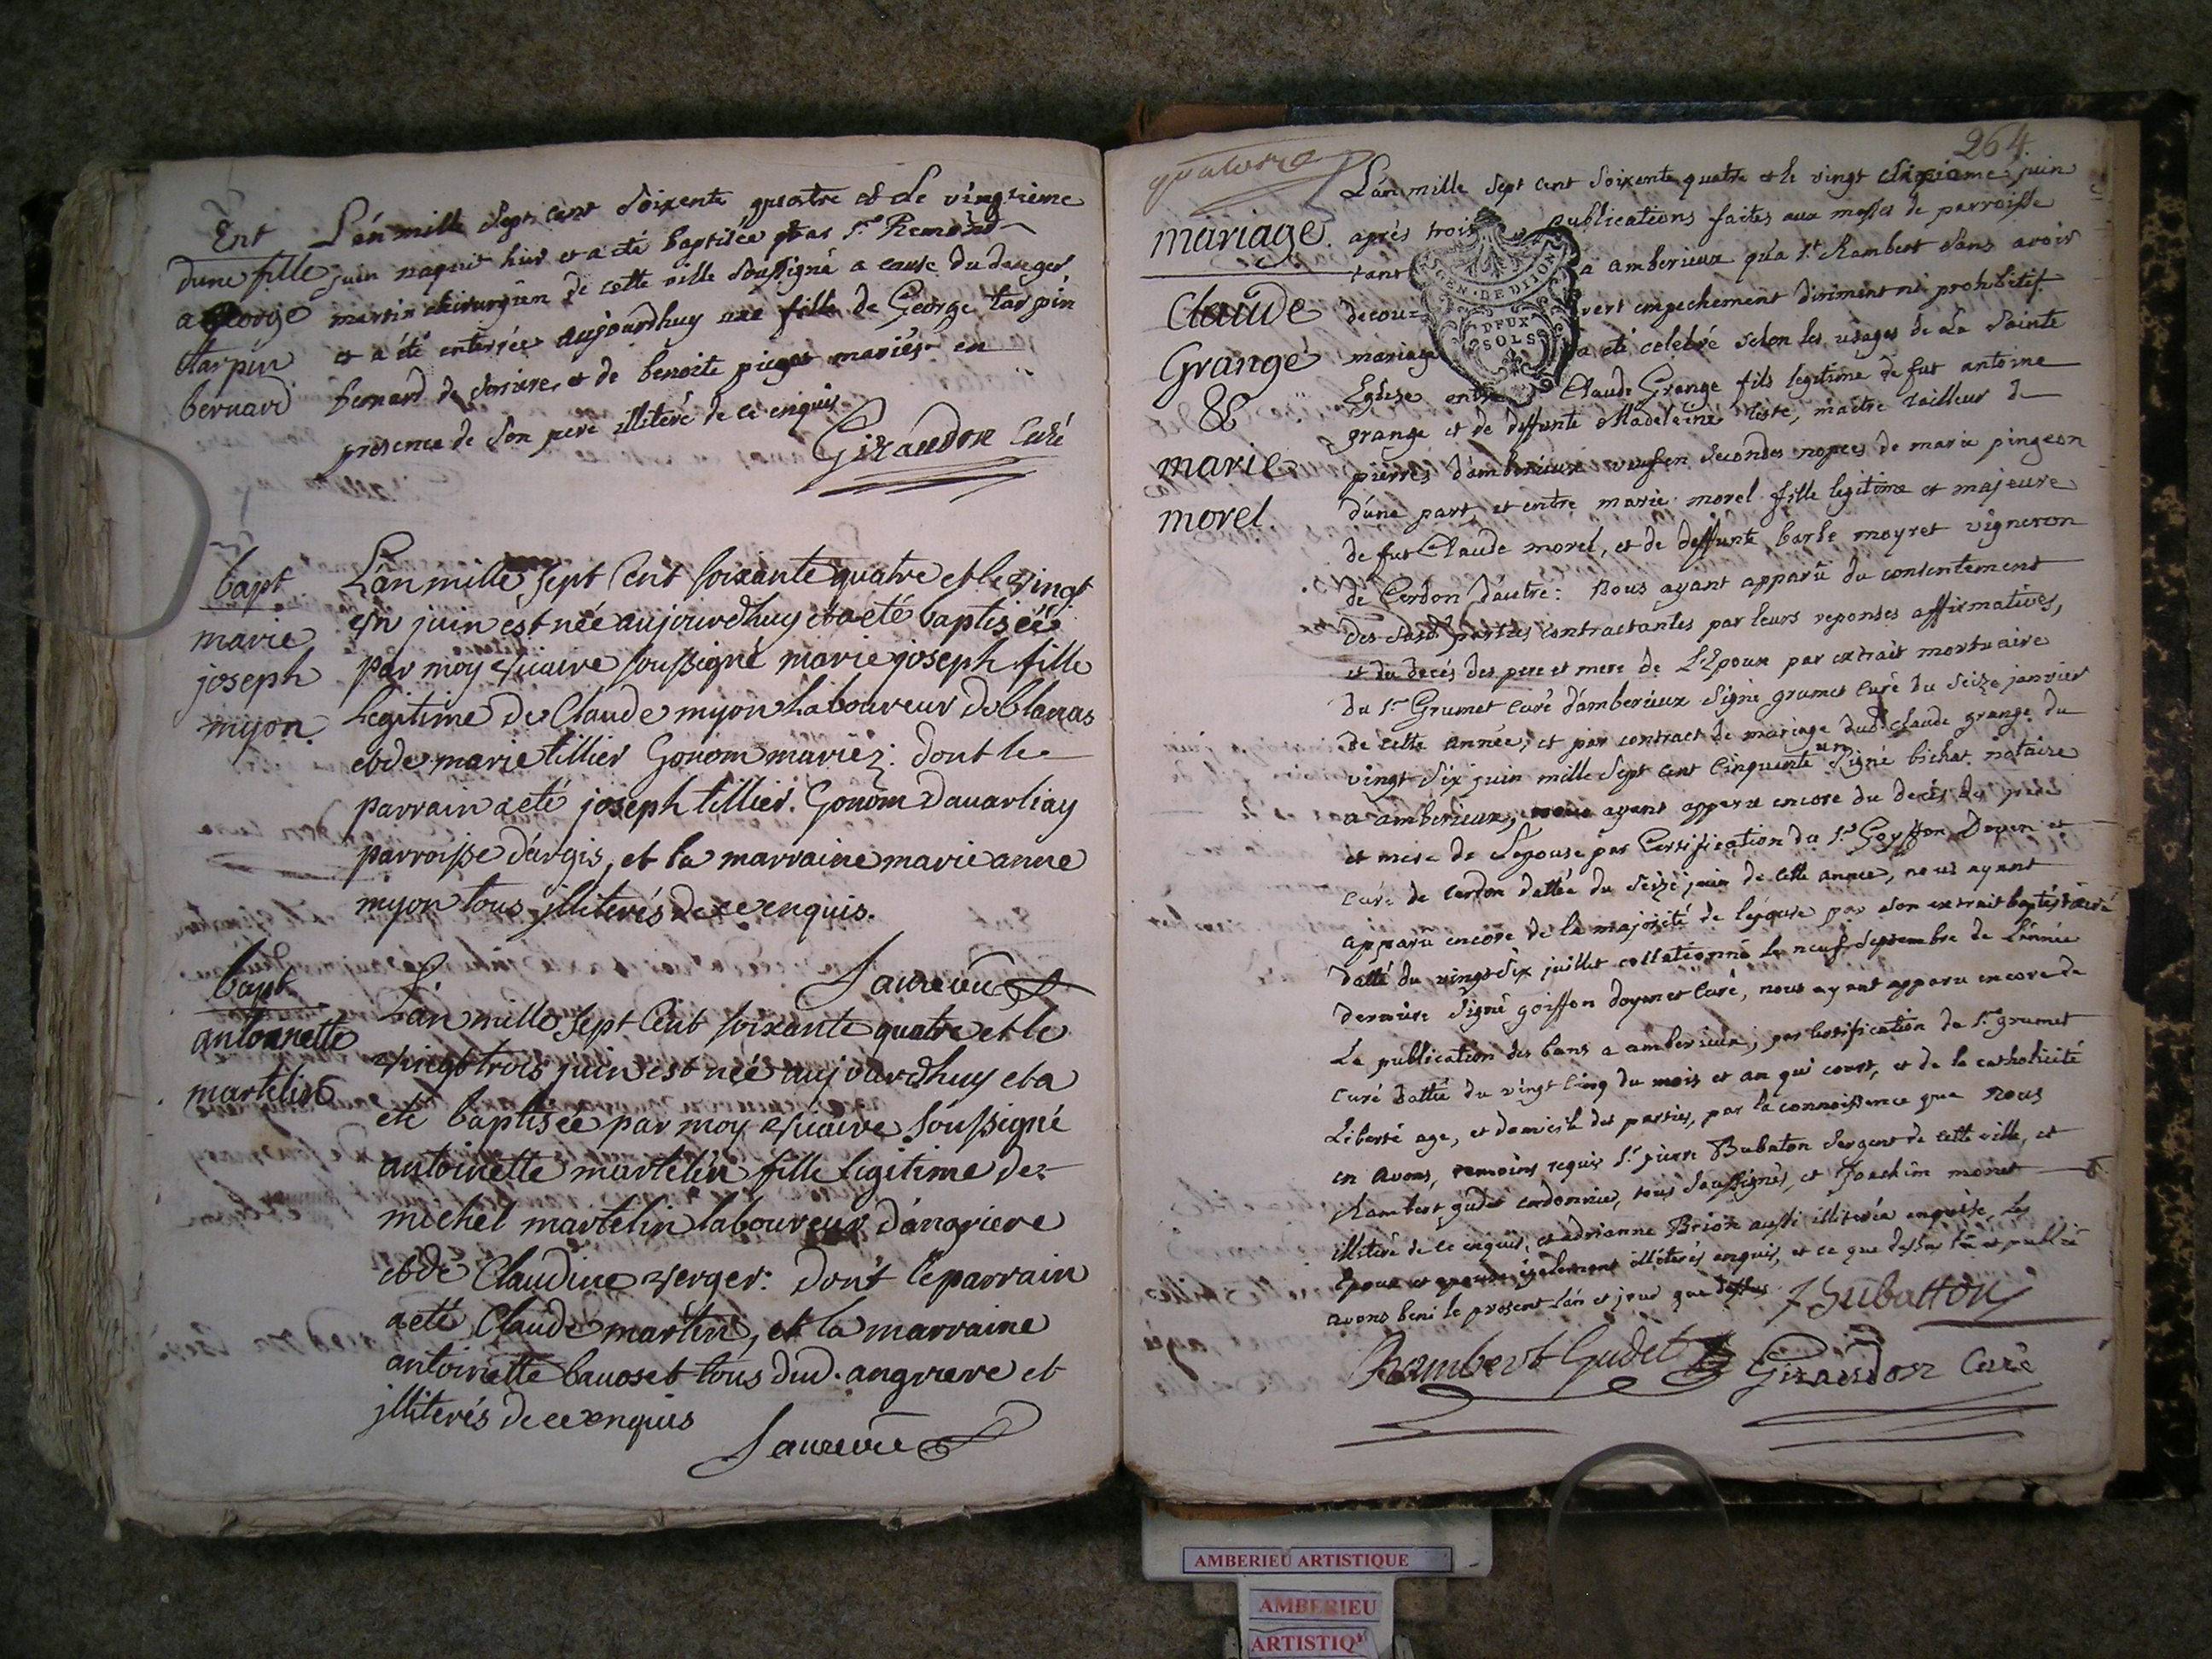 Ent
dune fille
a George
tarpin
bernard
L'an mille sept cent soixente quatre et le vingtieme
juin naquit hier et a eté baptisée par Sr. Remond
martin chirurgien de cette ville soussigné a cause du danger
et a été enterrée aujourdhuy une fille de George tarpin
bernard de et de benoite mariés en
presence de son pere illiteré de ce enquis
Giraudon Curé
bapt
marie
joseph
myon.
L'an mille sept Cent soixante quatre et le vingt
un juin est née aujourdhuy et a eté baptisée
par moy vicaire soussigné marie joseph fille
legitime de Claude myon laboureur de blanas
et de marie tillier Gonom mariéz: dont le
parrain a eté joseph tillier. Gonom d'averliay
parroisse d'argis, et la marraine marie anne
myon tous jlliterés de ce enquis.
bapt
antonnette
martelin
L'an mille sept Cent soixante quatre et le
vingt trois juin est née aujourdhuy et a
eté baptisée par moy vicaire soussigné
antoinette martelin fille legitime de
michel martelin laboureur d'angriere
et de Claudine verger: dont le parrain
a eté Claude martin, et la marraine
antoinette tous dud. angriere et
jlliterés de ce enquis
264
quatorze
mariage
Claude
Grange
&
marie
morel.
L'an mille sept cent soixente quatre et le vingt juin
après trois publications faites aux messes de parroisse
tant a amberieux qu'a St. Rambert sans avoir
decou= vert empechement diriment ni prohibitif
mariage a eté celebré selon les usages de la sainte
GEN. DE DIJON
DEUX
SOLS
Eglise entre Claude Grange fils legitime de fut antoine
grange et de deffunte Madeleine tiste, maitre tailleur de
pierres d'amberieux veuf en secondes nopces de marie pingeon
d'une part, et entre marie morel fille legitime et majeure
de fut Claude morel, et de deffunte barbe moyret vigneron
de Cerdon d'autre: Nous ayant apparu du consentement
des parties contractantes par leurs reponses affirmatives,
et du decés des pere et mere de L'Epoux par extrait mortuaire
du Sr. Grumet Curé d'amberieux signé grumet curé du seize janvier
de cette année, et par contract de mariage dud. Claude grange du
vingt six juin mille sept cent cinquante un signé bichat notaire
a amberieux, nous ayant apparu encore du decés des pere
et mere de L'epouse par Certification du Sr. Goyffon Doyen et
Curé de Cerdon dattée du seize juin de cette année, nous ayant
apparu encore de la majorité de l'epouse par son extrait baptistaire
datté du vingt six juillet collationné le neuf septembre de L'année
derniere signé goiffon doyen et Curé, nous ayant apparu encore de
La publication des bans a amberieux, par certification du Sr. grumet
curé dattée du vingt cinq du mois et an qui court, et de la catholicité
Liberté age, et domicile des parties, par la connoissance que Nous
en avons, temoins requis Sr. pierre Bubaton sergent de cette ville, et
Rambert gudet cordonnier, tous soussignés, et Joachim monet
illiteré de ce enquis, et adrianne Brion aussi illiterée enquise, les
Epoux et epouse également illiterés enquis, et ce que dessus lu et publié
avons beni le present L'an et jour que dessus.
Bubatton
Rambert Gudet
Giraudon Curé
AMBERIEU ARTISTIQUE
AMBERIEU
ARTISTIQ